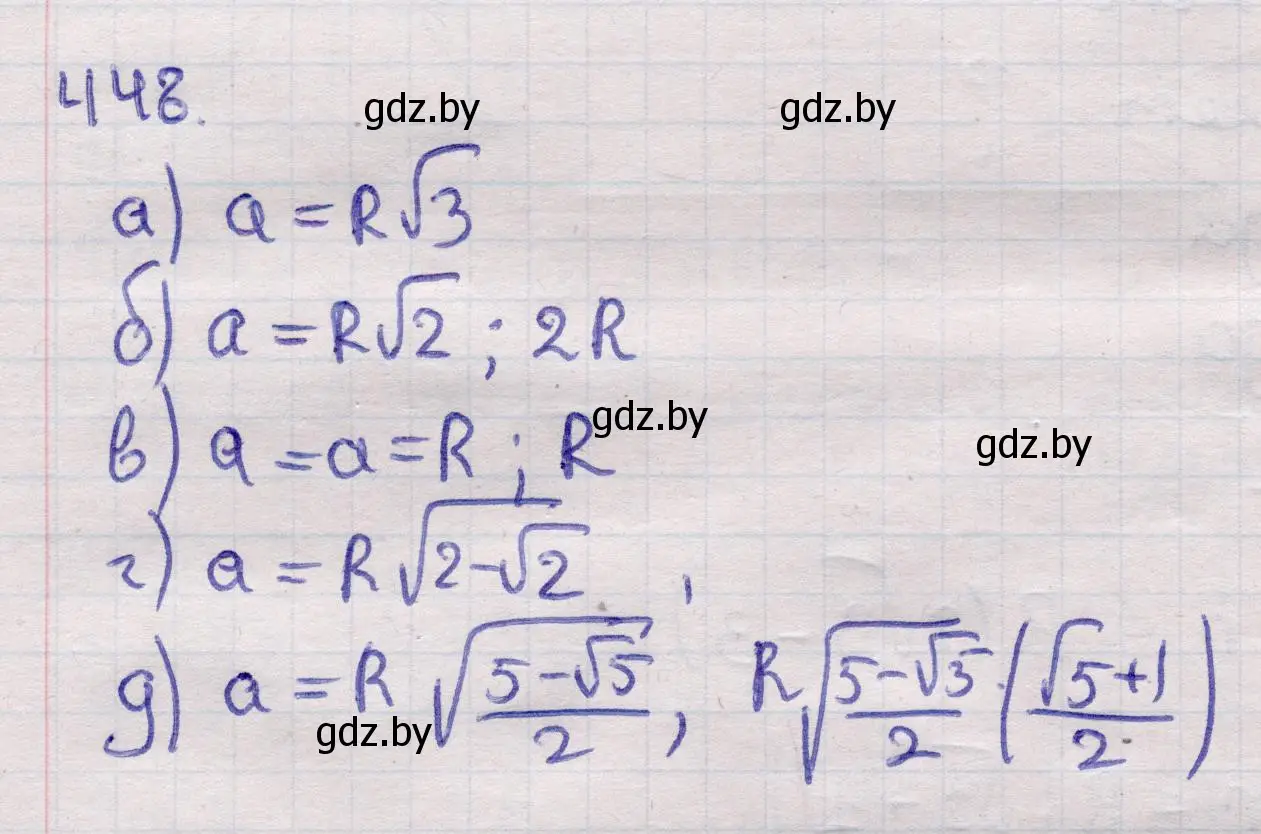 448.
gdz.by gdz.by
а) a = R√3
б) a = R√2 ; 2R
в) a = a = R ; R
gdz.by gdz.by
г) a = R√(2-√2) ,
д) a = R √((5-√5)/2) , R√((5-√5)/2) · ((√5+1)/2)
gdz.by